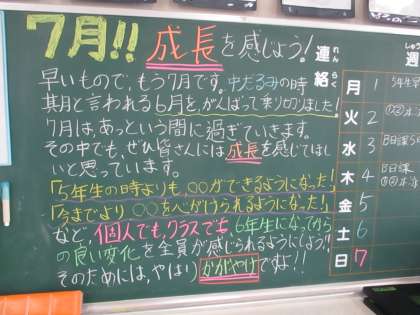 7月!! 成長を感じよう!
早いもので、もう7月です。中だるみの時
期と言われる6月を、がんばって乗り切りました!
7月は、あっという間に過ぎていきます。
その中でも、ぜひ皆さんには成長を感じてほし
いと思っています。
「5年生の時よりも、○○ができるようになった!」
「今までより○○を心がけられるようになった!」
など、個人でも、クラスでも、6年生になってから
の良い変化を全員が感じられるようにしよう!!
そのためには、やはりかがやけですよ!!
連絡
れんらく
月 1
火 2
水 3
木 4
金 5
土 6
日 7
週
しゅう
5年生
B日課
B日課